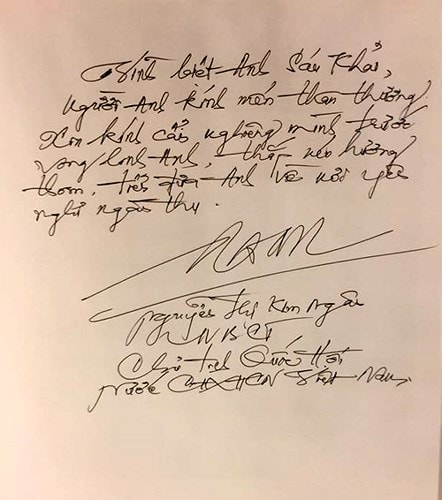 Vĩnh biệt Anh Sáu Khải,
người Anh kính mến thân thương
Xin kính cẩn nghiêng mình trước
vong linh Anh, thắp nén hương
thơm, tiễn đưa Anh về nơi yên
nghỉ ngàn thu.
Nguyễn Thị Kim Ngân
UVBCT
Chủ tịch Quốc Hội
nước CHXHCN Việt Nam